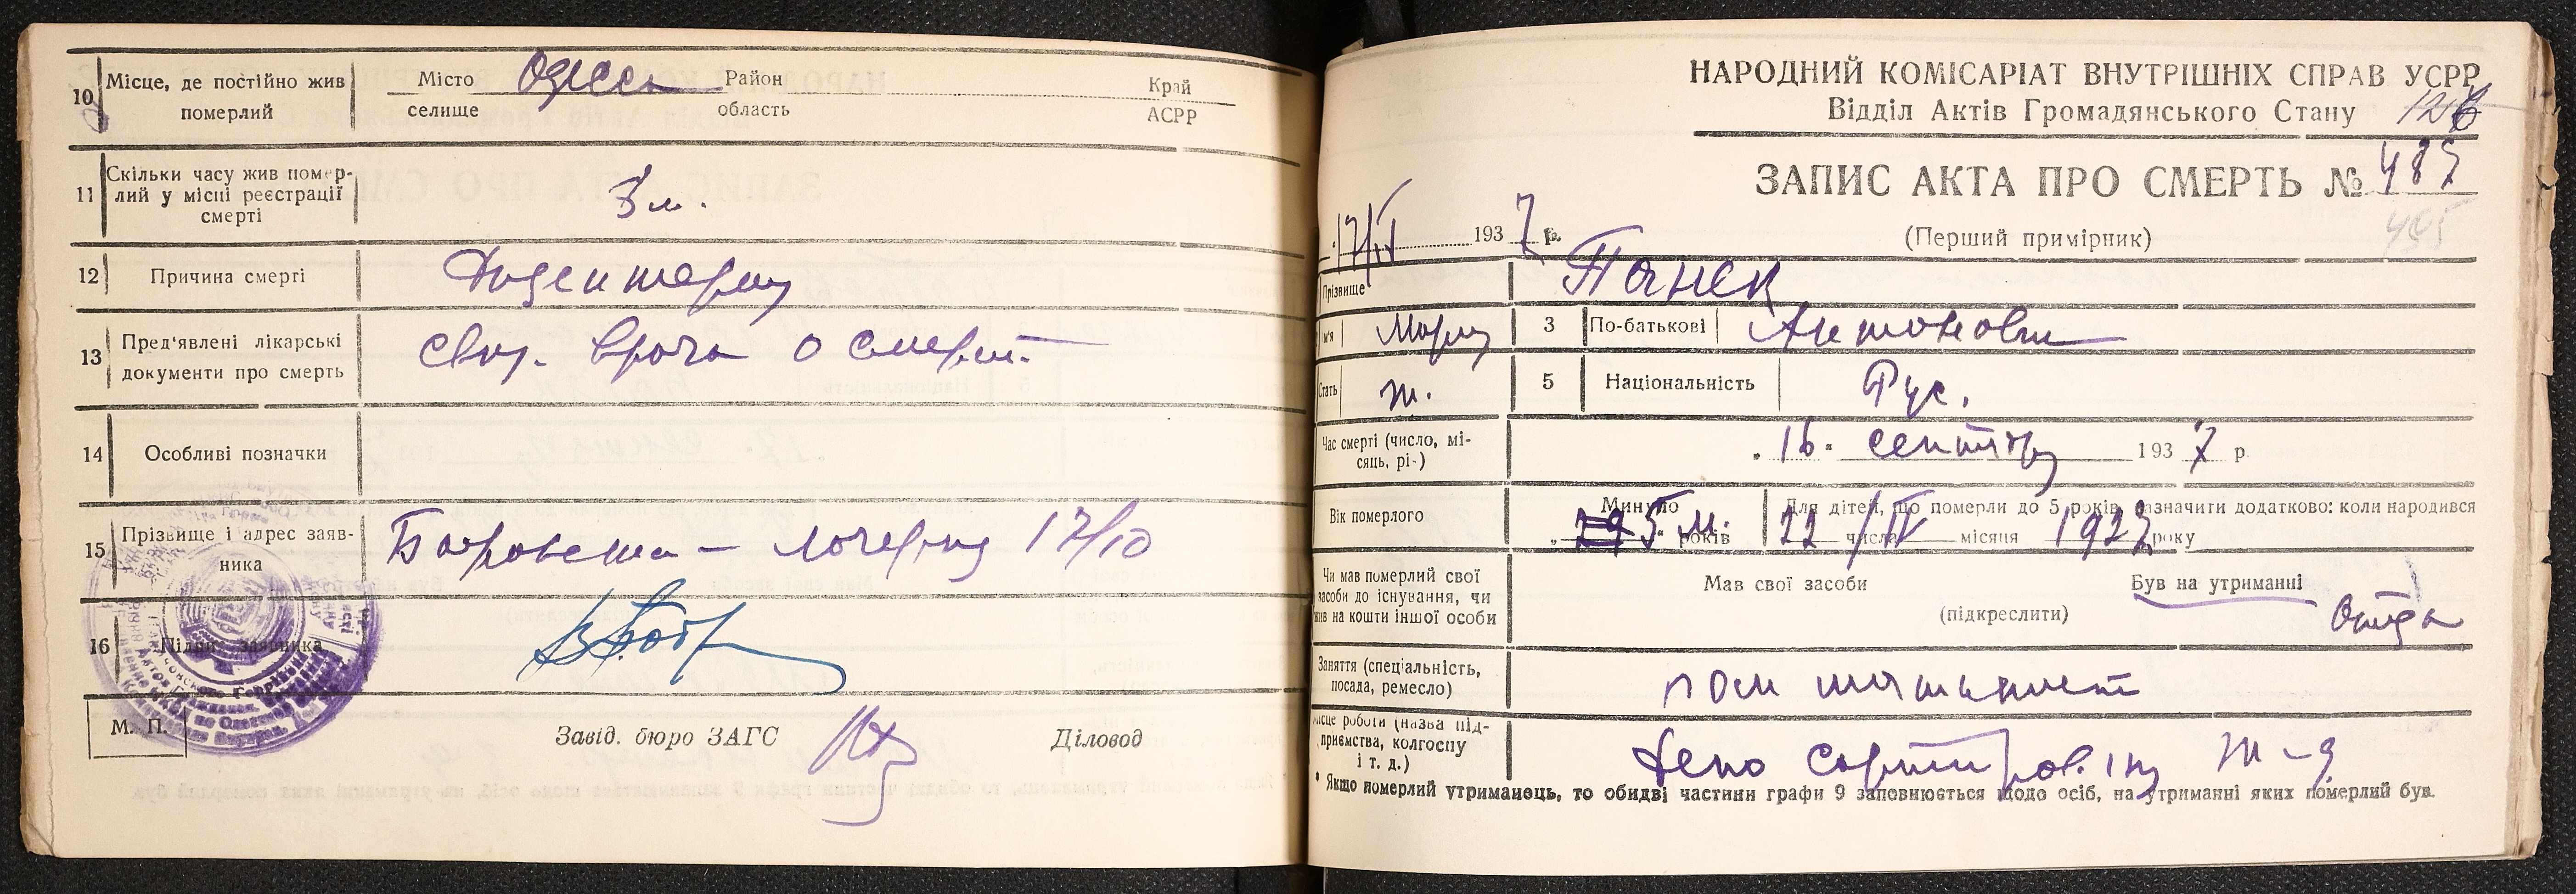 10 Місце, де постійно жив померлий
Місто селище Одесса Район область Край АСРР
11 Скільки часу жив помер-
лий у місці реєстрації
смерті
3 м.
12 Причина смерті Дизентерия
13 Пред'явлені лікарські
документи про смерть
свид. врача о смерти
14 Особливі позначки
15 Прізвище і адрес заяв-
ника
17/10
16 Підпис заявника
М. П.
Завід. бюро ЗАГС
Діловод
НАРОДНИЙ КОМІСАРІАТ ВНУТРІШНІХ СПРАВ УСРР
Відділ Актів Громадянського Стану 126
ЗАПИС АКТА ПРО СМЕРТЬ № 487
495
17/IX 1937 р.
(Перший примірник)
Прізвище Панек
м'я Мария 3 По-батькові Антоновн
Стать ж. 5 Національність Рус.
Час смерті (число, мі-
сяць, рі-)
16 сентября 1937 р.
Вік померлого
Минуло 5 м. років
Для дітей, що померли до 5 років, зазначити додатково: коли народився
22 числа / IV місяця 1937 року
Чи мав померлий свої
засоби до існування, чи
жив на кошти іншої особи
Мав свої засоби Був на утриманні
(підкреслити)
Отца
Заняття (спеціальність,
посада, ремесло)
пом машинист
Місце роботи (назва під-
приємства, колгоспу
і т. д.)
Депо Сортировочная ж-д
* Якщо померлий утриманець, то обидві частини графи 9 заповнюється щодо осіб, на утриманні яких померлий був.